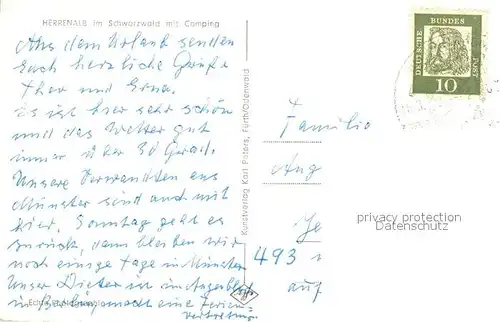 HERRENALB im Schwarzwald mit Camping
Aus dem Urlaub senden
Euch herzliche Grüße
Ther und Erna.
Es ist hier sehr schön
und das Wetter gut
immer über 30 Grad.
Unsere Verwandten aus
Münster sind auch mit
hier. Sonntag geht es
zurück, dann bleiben wir
noch einige Tage in Münster
Unser Dieter ist im
noch eine Ferien-
vertretung
Kunstverlag Karl Peters, Fürth/Odenwald
DEUTSCHE
BUNDES
POST
10
Familie
Aug
493
auf
privacy protection
Datenschutz